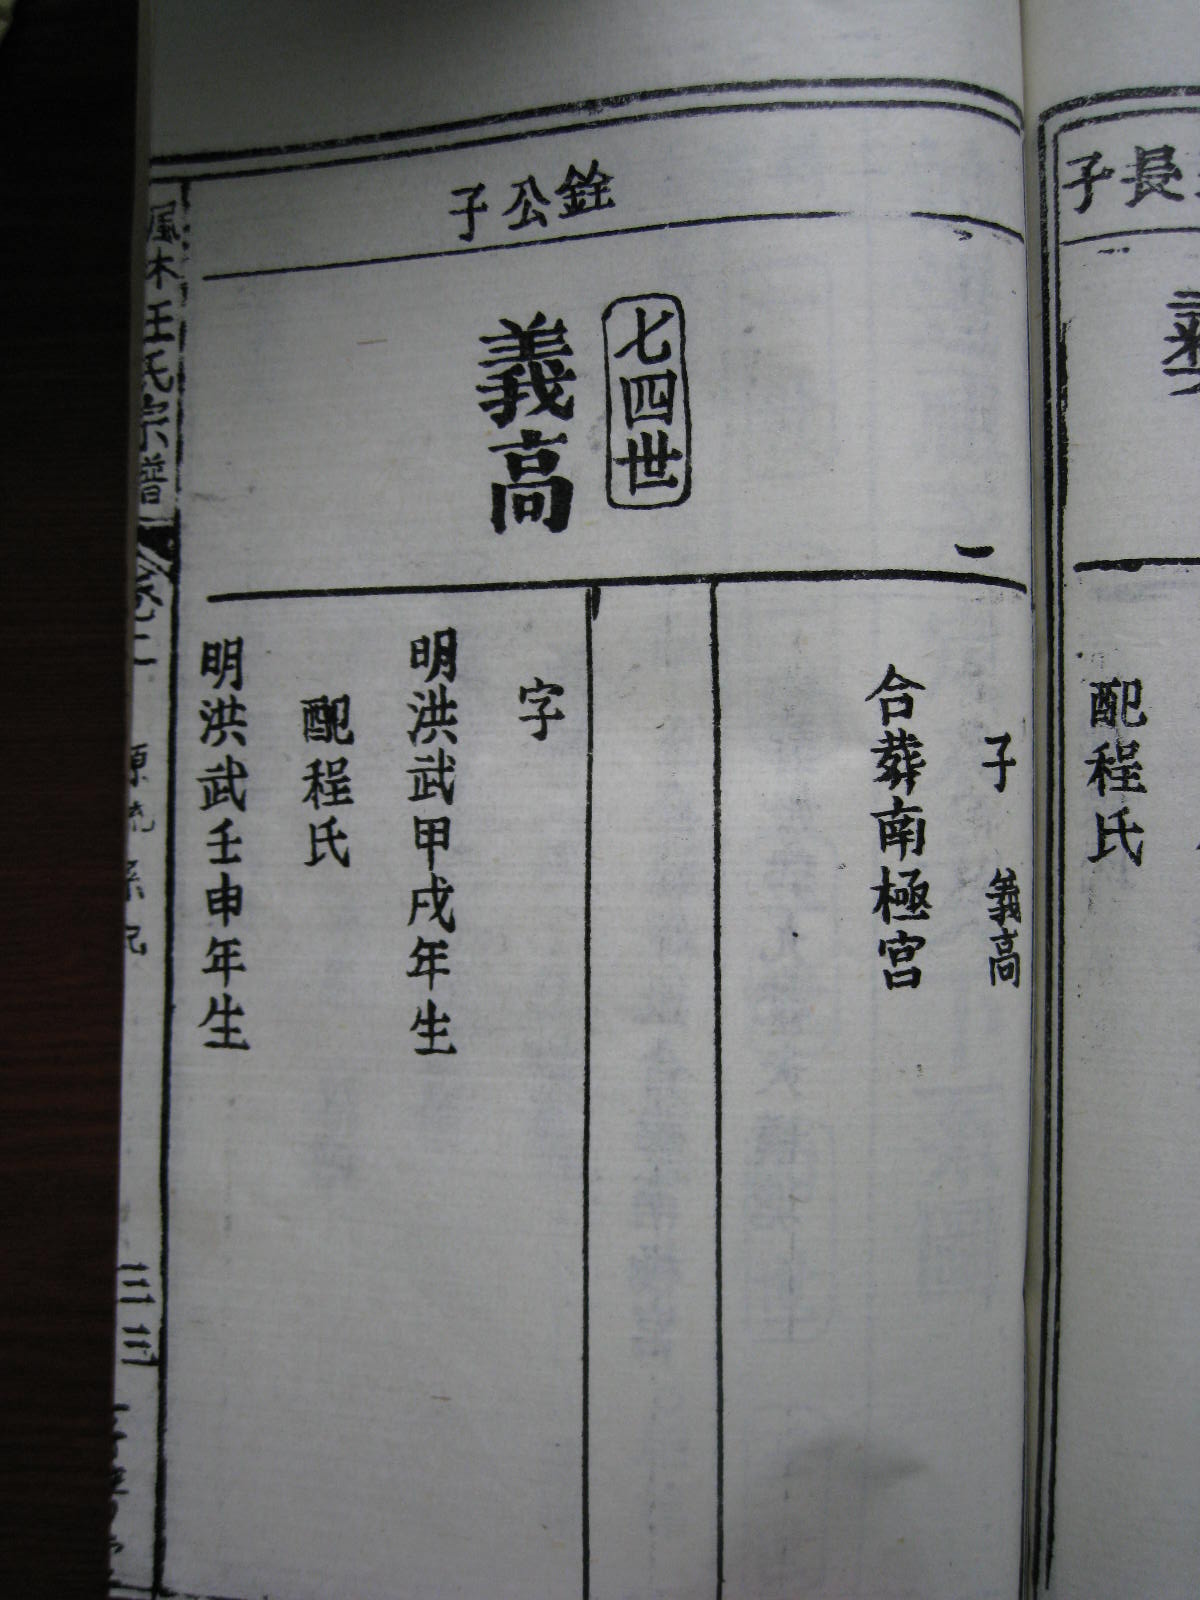 長子
配程氏
子 義高
合葬南極宮
一
銓公子
七四世
義高
字
明洪武甲戌年生
配程氏
明洪武壬申年生
木王氏宗譜
卷二
源流系紀
三三